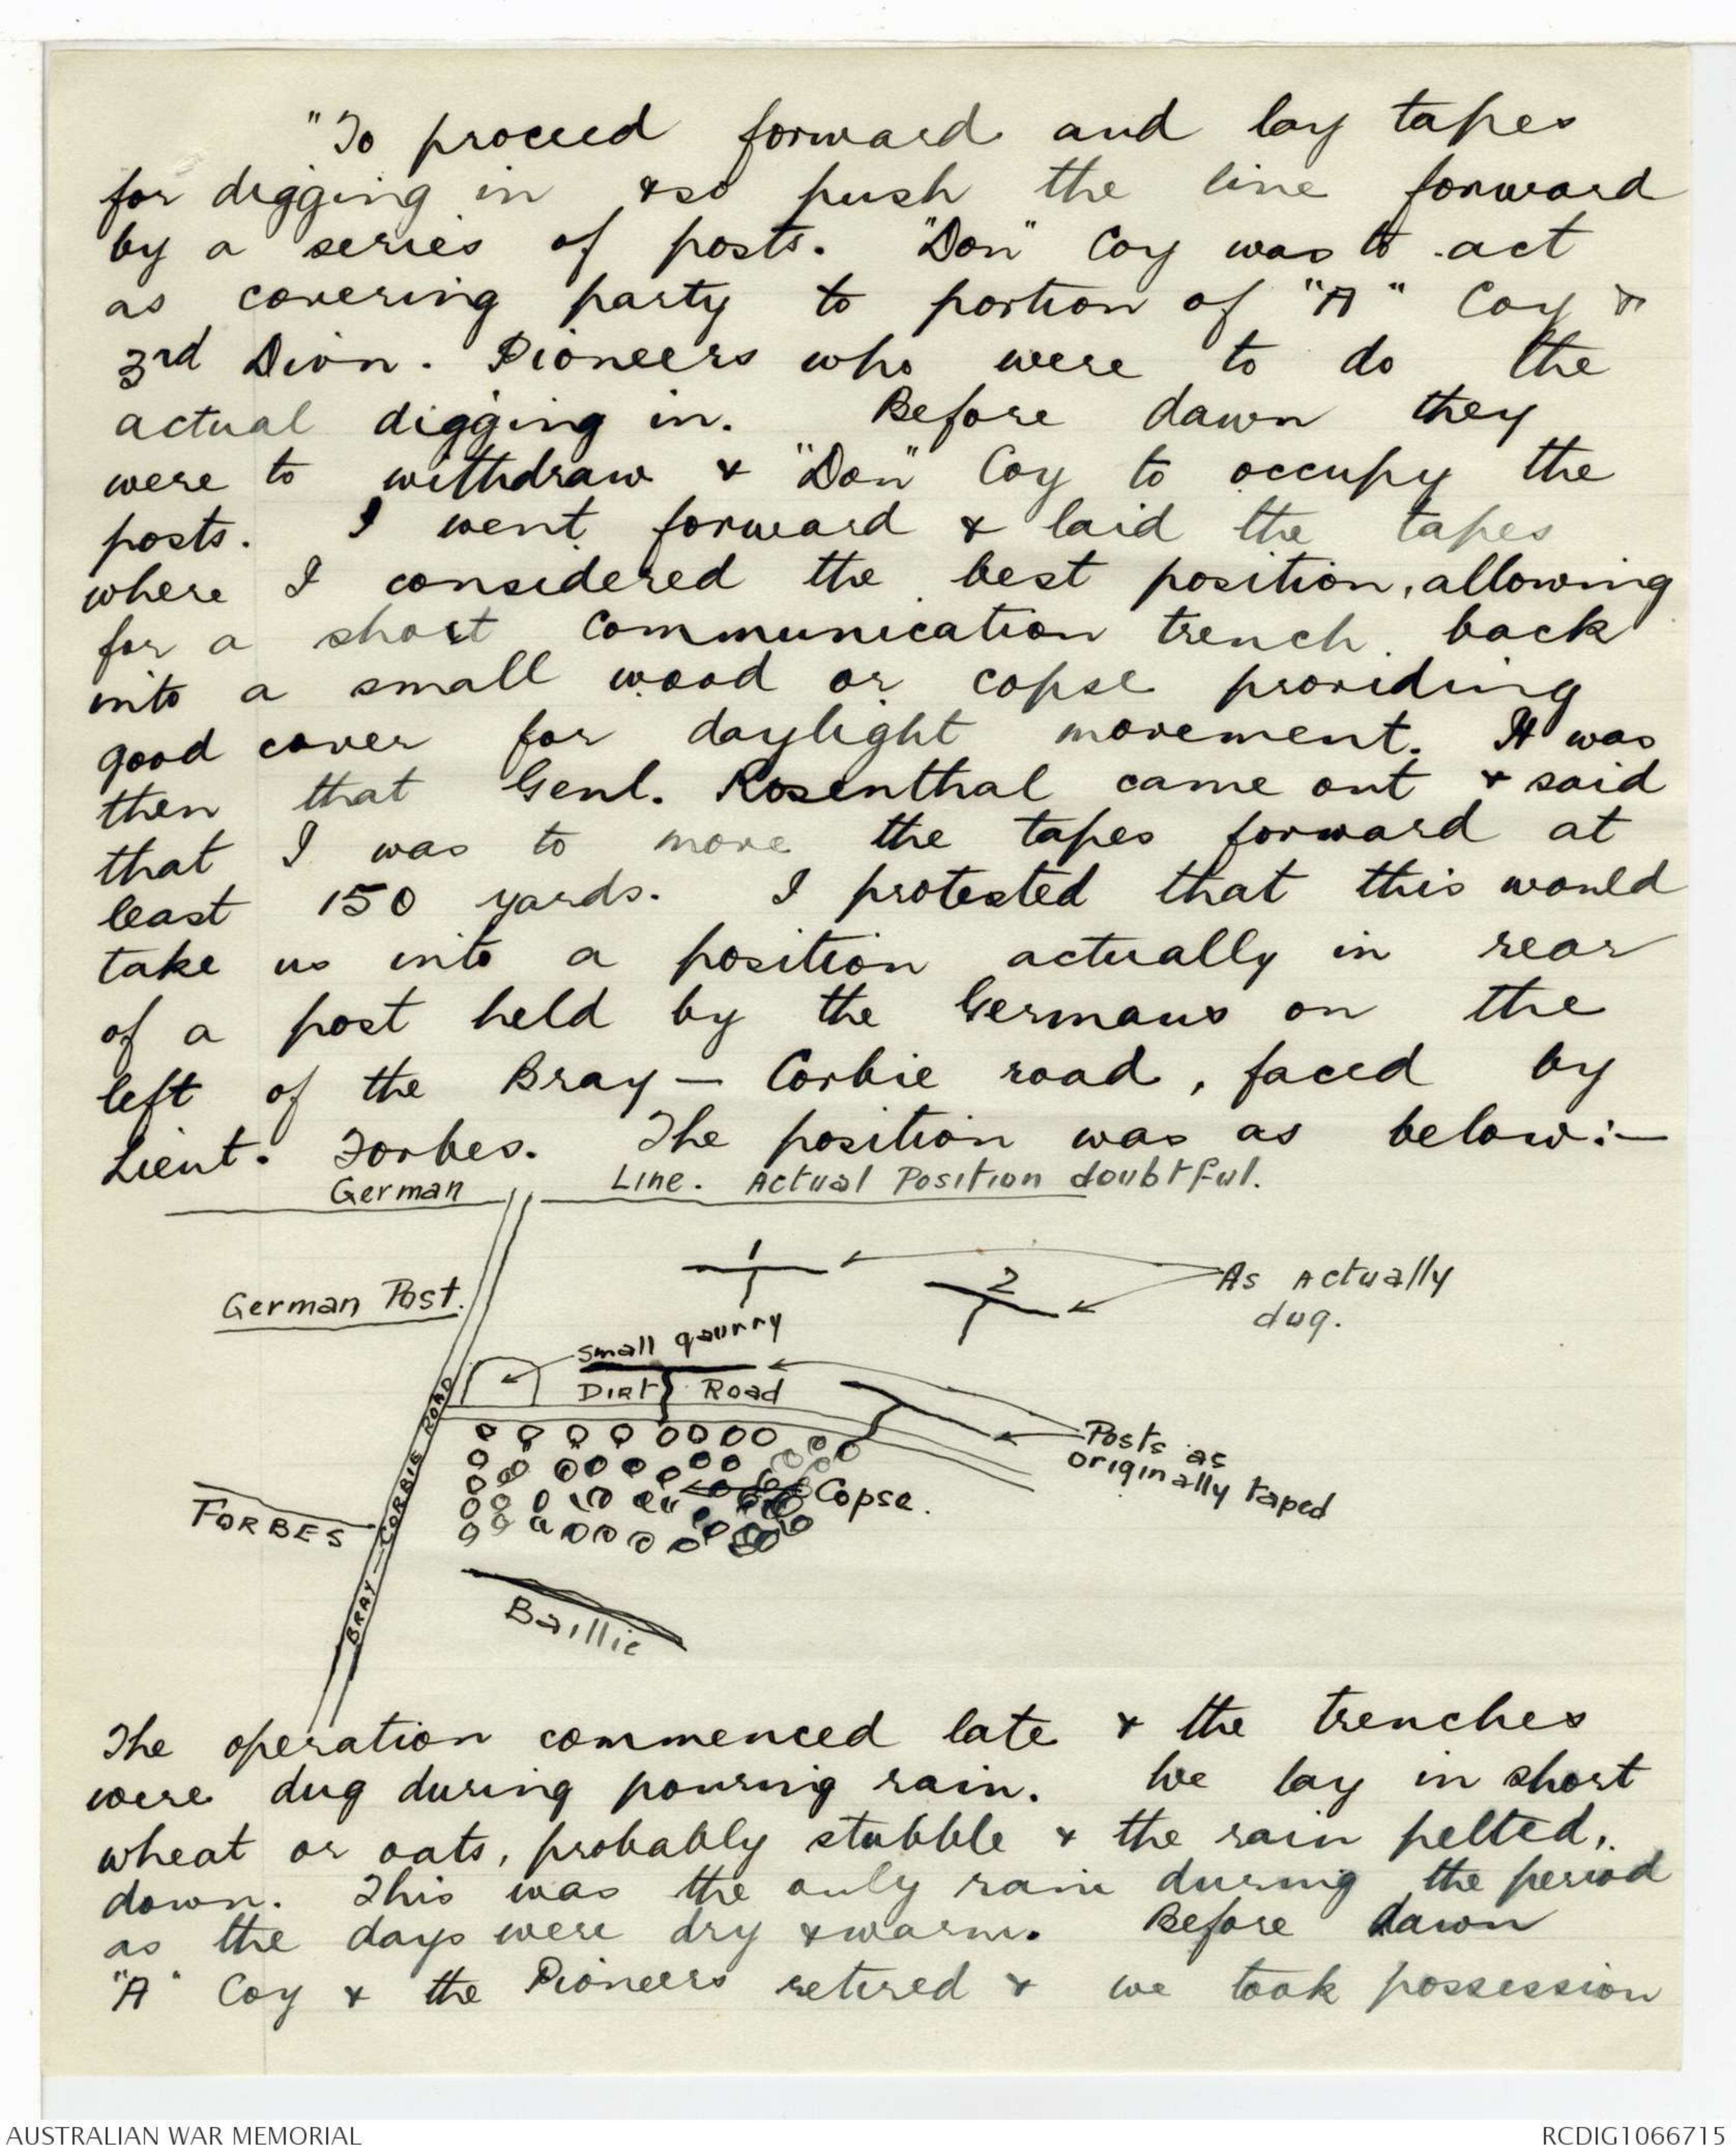 "To proceed forward and lay tapes
for digging in & so push the line forward
by a series of posts. "Don" Coy was to act
as covering party to portion of "A" Coy &
3rd Divn. Pioneers who were to do the
actual digging in. Before dawn they
were to withdraw & "Don" Coy to occupy the
posts. I went forward & laid the tapes
where I considered the best position, allowing
for a short communication trench back
into a small wood or copse providing
good cover for daylight movement. It was
then that Genl. Rosenthal came out & said
that I was to move the tapes forward at
least 150 yards. I protested that this would
take us into a position actually in rear
of a post held by the Germans on the
left of the Bray - Corbie road, faced by
Lieut. Forbes. The position was as below:-
German Line. Actual Position doubtful.
1
2
As Actually
dug.
German Post.
small qaurry
Dirt Road
Posts as
originally taped
Copse.
FORBES
BRAY - CORBIE ROAD
Baillie
The operation commenced late & the trenches
were dug during pouring rain. We lay in short
wheat or oats, probably stubble & the rain pelted
down. This was the only rain during the period
as the days were dry & warm. Before dawn
"A" Coy & the Pioneers retired & we took possession
AUSTRALIAN WAR MEMORIAL
RCDIG1066715